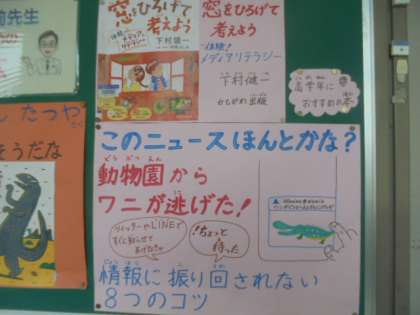 前先生
窓をひろげて
考えよう
下村健一
窓をひろげて
考えよう
体験!
メディアリテラシー
下村健一
かもがわ出版
高学年に
おすすめの本
たつや
そうだな
このニュースほんとかな?
どうぶつえん
動物園から
ワニが逃げた!
ツイッターやLINEで
すぐに知らせて
あげなきゃ
ちょっと
待った
情報に振り回されない
8つのコツ